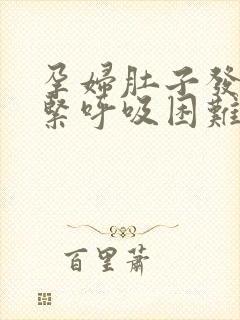 孕婦肚子發
緊呼吸困難
百里蕭